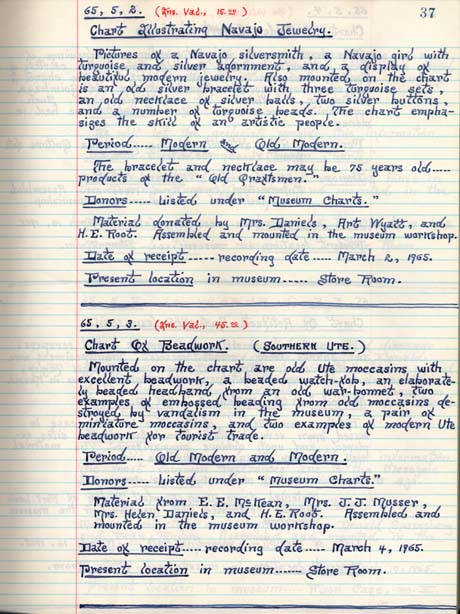 37
65, 5, 2. (Ins. Val., 15.00)
Chart Illustrating Navajo Jewelry.
Pictures of a Navajo silversmith, a Navajo girl with
turquoise and silver adornment, and, a display of
beautiful modern jewelry. Also mounted on the chart
is an old silver bracelet with three turquoise sets,
an old necklace of silver balls, two silver buttons,
and a number of turquoise beads. The chart empha-
sizes the skill of an artistic people.
Period..... Modern and Old Modern.
The bracelet and necklace may be 75 years old.....
products of the "Old Craftsmen."
Donors----- Listed under "Museum Charts."
Material donated by Mrs. Daniels, Art Wyatt, and
H.E. Root. Assembled and mounted in the museum workshop.
Date of receipt----- recording date----- March 2, 1965.
Present location in museum----- Store Room.
65, 5, 3. (Ins. Val., 45.00)
Chart Of Beadwork. (Southern Ute.)
Mounted on the chart are old Ute moccasins with
excellent beadwork, a beaded watch-fob, an elaborate-
ly beaded headband from an old war-bonnet, two
examples of embossed beading from old moccasins de-
stroyed by vandalism in the museum, a pair of
miniature moccasins, and two examples of modern Ute
beadwork for tourist trade.
Period..... Old Modern and Modern.
Donors----- Listed under "Museum Charts."
Material from E. E. McKean, Mrs. J. J. Musser,
Mrs. Helen Daniels, and H.E. Root. Assembled and
mounted in the museum workshop.
Date of receipt..... recording date..... March 4, 1965.
Present location in museum------ Store Room.